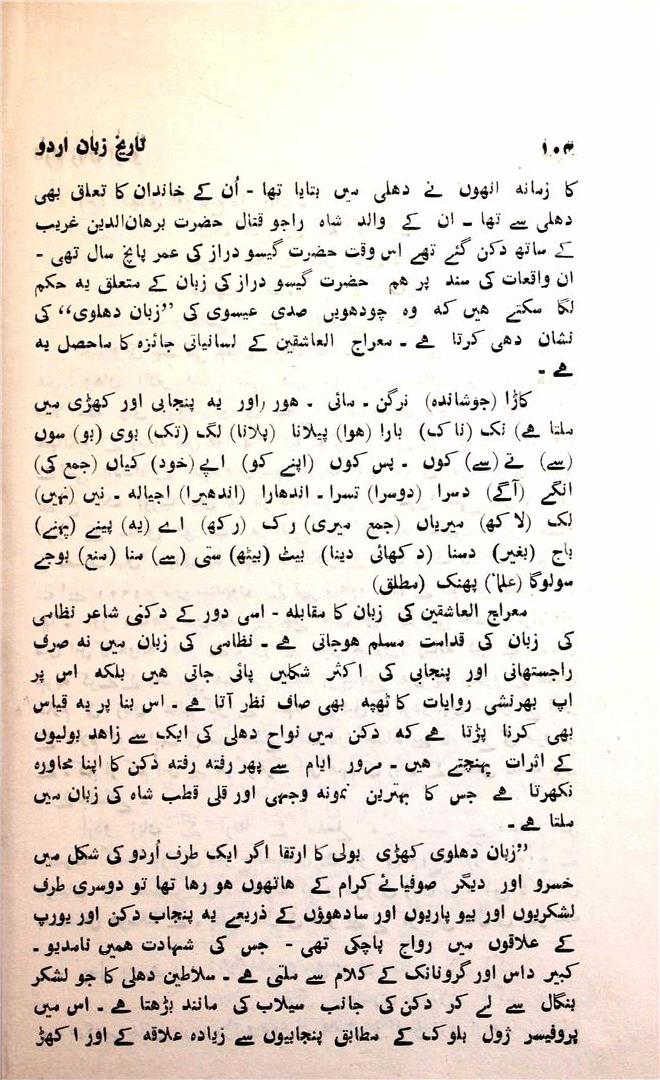 ۱۰۴ تاریخ زبان اردو
کا زمانہ انھوں نے دھلی میں بتایا تھا - اُن کے خاندان کا تعلق بھی
دھلی سے تھا ـ ان کے والد شاہ راجو قتال حضرت برھان‌الدین غریب
کے ساتھ دکن گئے تھے اس وقت حضرت گیسو دراز کی عمر پانچ سال تھی -
ان واقعات کی سند پر ھم حضرت گیسو دراز کی زبان کے متعلق یہ حکم
لگا سکتے ھیں کہ وہ چودھویں صدی عیسوی کی ”زبان دھلوی“ کی
نشان دھی کرتا ھے ـ معراج العاشقین کے لسانیاتی جائزہ کا ماحصل یہ
ھے ـ
کاڑا (جوشاندہ) نرگن ـ مائی ـ ھور (اور یہ پنجابی اور کھڑی میں
ملتا ھے) نک (ناک) بارا (ھوا) پیلانا (پلانا) لگ (تک) بوی (بو) سوں
(سے) تے (سے) کوں ـ پس کوں (اپنے کو) اپے (خود) کیاں (جمع کی)
انگے (آگے) دسرا (دوسرا) تسرا ـ اندھارا (اندھیرا) اجیالہ ـ نیں (نہیں)
لک (لاکھ) میریاں (جمع میری) رک (رکھ) اے (یہ) پینے (پہنے)
باج (بغیر) دسنا (دکھائی دینا) بیٹ (بیٹھ) ستی (سے) منا (منع) بوجے
مولوگا (علما) پھنک (مطلق)
معراج العاشقین کی زبان کا مقابلہ - اسی دور کے دکنی شاعر نظامی
کی زبان کی قدامت مسلم ھوجاتی ھے ـ نظامی کی زبان میں نہ صرف
راجستھانی اور پنجابی کی اکثر شکلیں پائی جاتی ھیں بلکہ اس پر
اپ بھرنشی روایات کا ٹھپہ بھی صاف نظر آتا ھے ـ اس بنا پر یہ قیاس
بھی کرنا پڑتا ھے کہ دکن میں نواح دھلی کی ایک سے زاھد بولیوں
کے اثرات پہنچتے ھیں ـ مرور ایام سے پھر رفتہ رفتہ دکن کا اپنا محاورہ
نکھرتا ھے جس کا بہترین نمونہ وجہی اور قلی قطب شاہ کی زبان میں
ملتا ھے ـ
”زبان دھلوی کھڑی بولی کا ارتقا اگر ایک طرف اُردو کی شکل میں
خسرو اور دیگر صوفیائے کرام کے ھاتھوں ھو رھا تھا تو دوسری طرف
لشکریوں اور بیو پاریوں اور سادھوؤں کے ذریعے یہ پنجاب دکن اور یورپ
کے علاقوں میں رواج پاچکی تھی - جس کی شہادت ھمیں نامدیو ـ
کبیر داس اور گرونانک کے کلام سے ملتی ھے ـ سلاطین دھلی کا جو لشکر
بنگال سے لے کر دکن کی جانب سیلاب کی مانند بڑھتا ھے ـ اس میں
پروفیسر ژول بلوک کے مطابق پنجابیوں سے زیادہ علاقہ کے اور اکھڑ